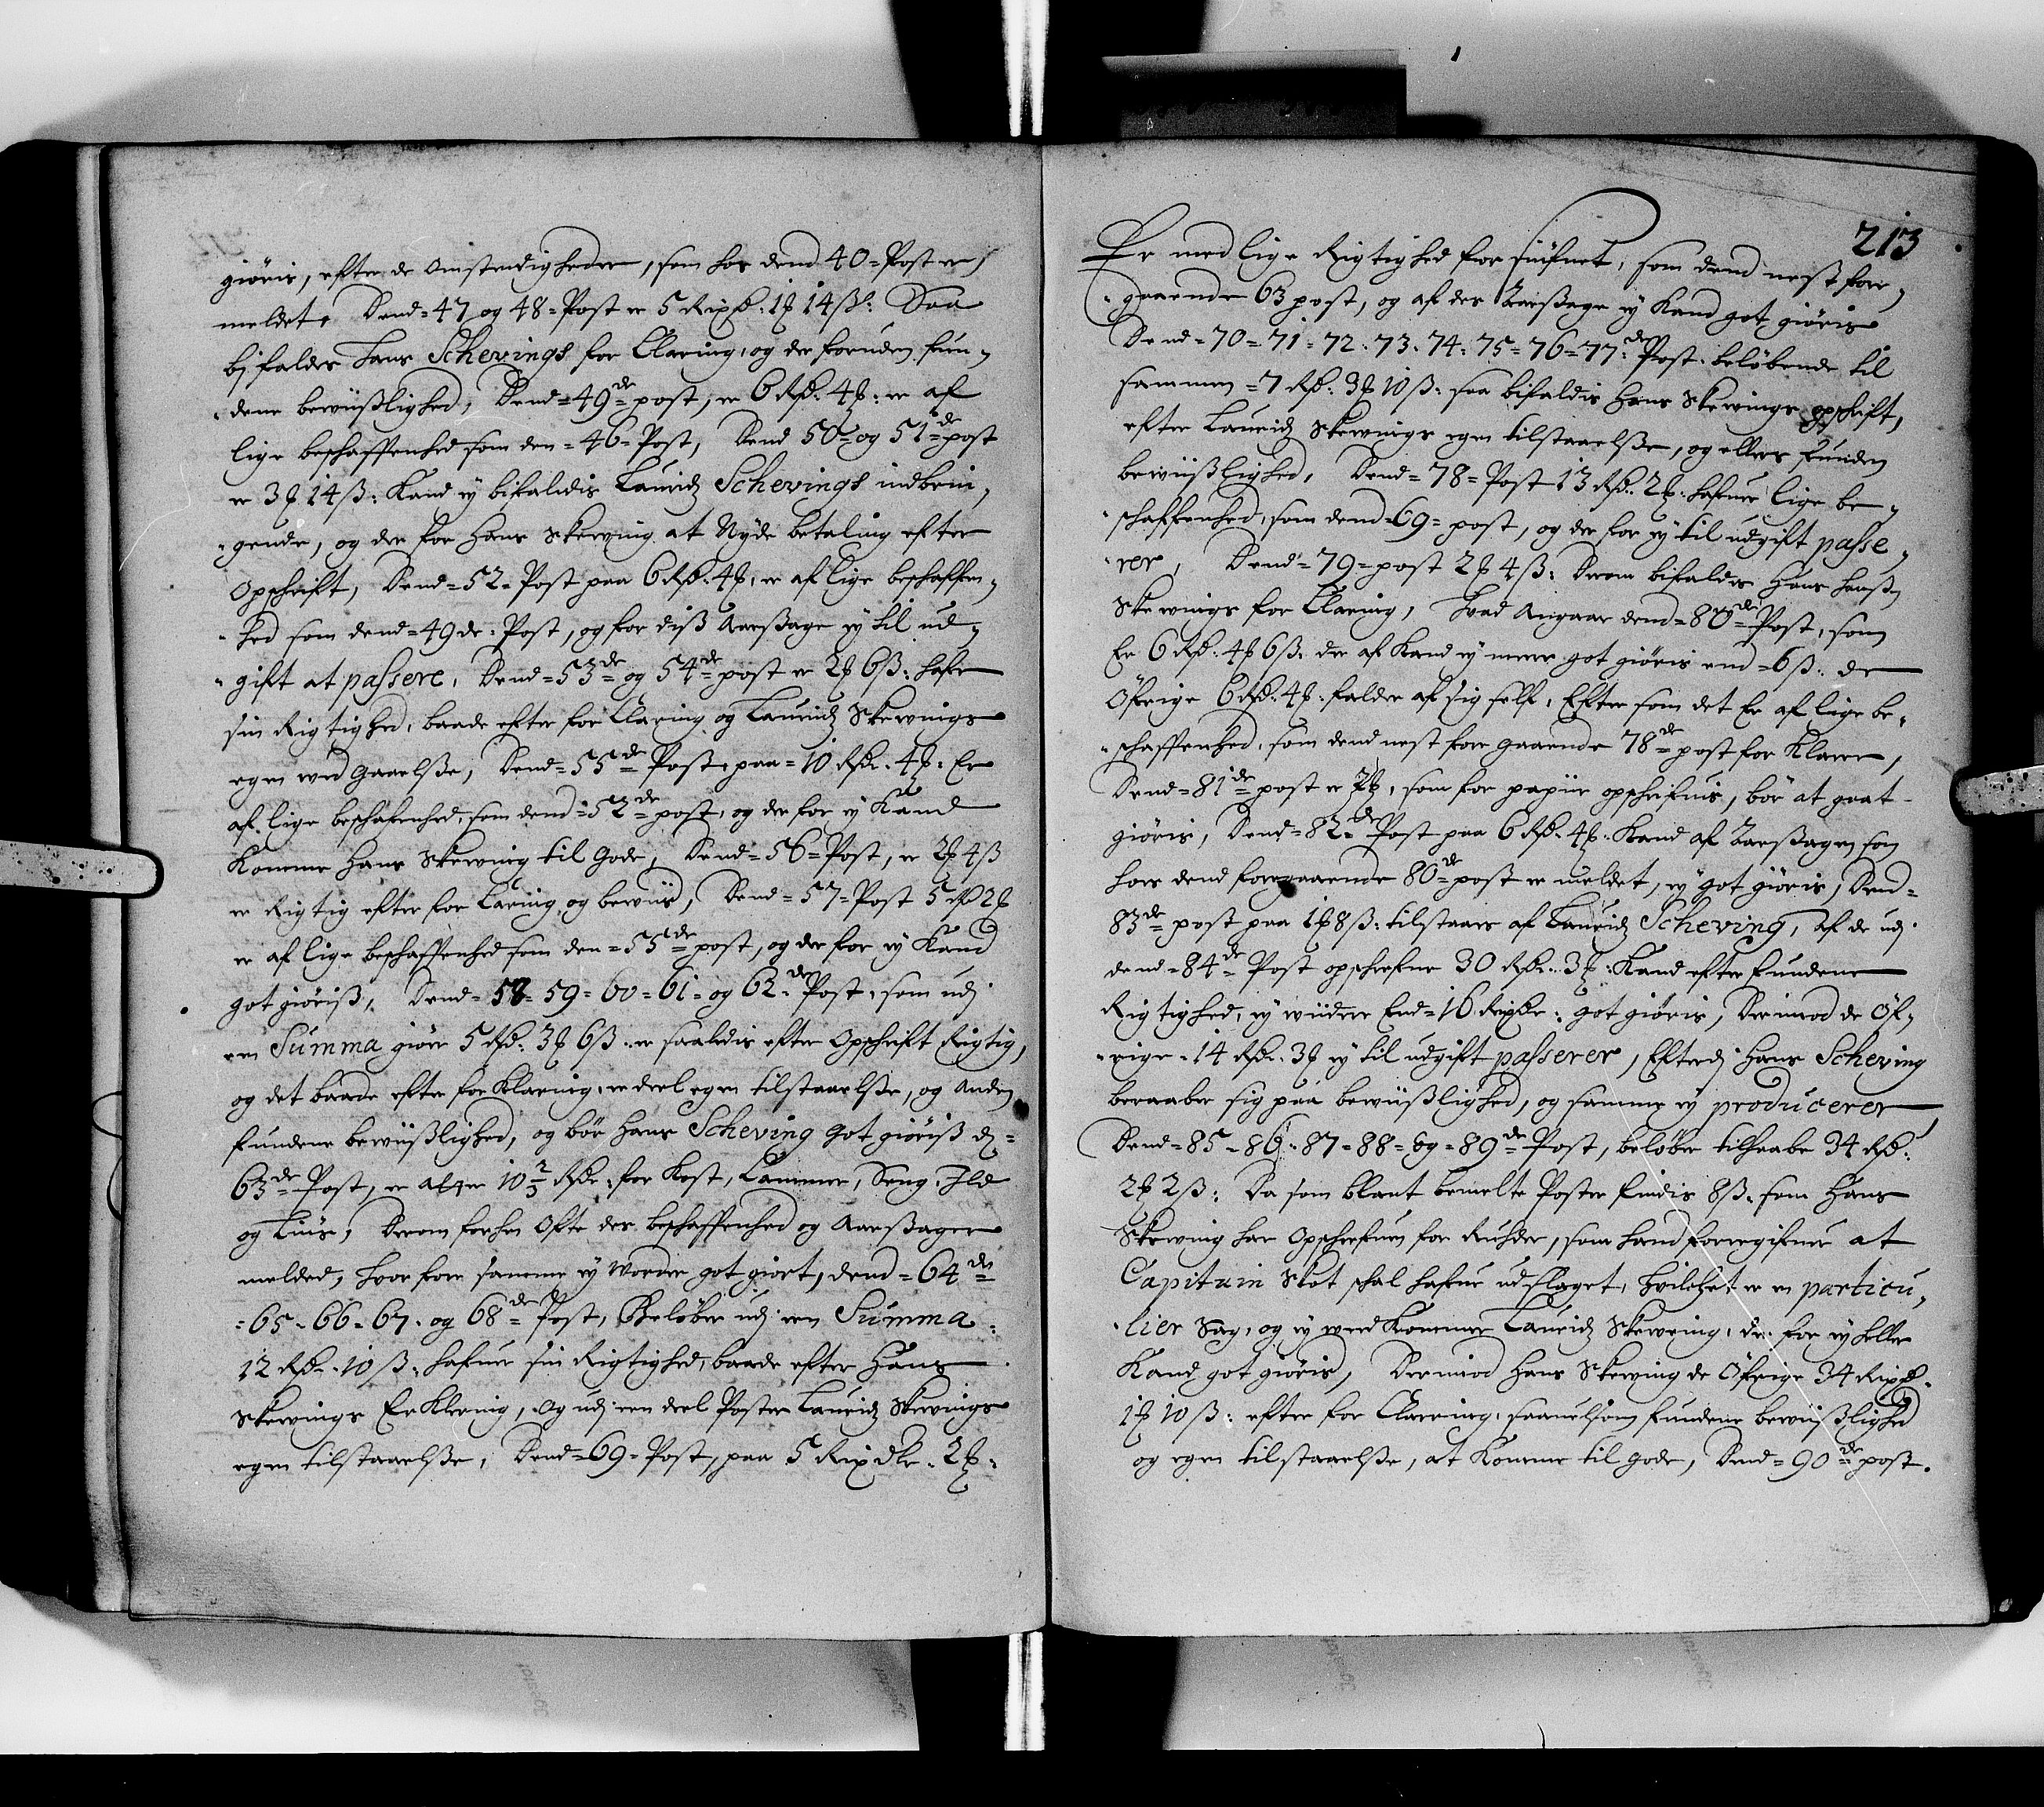 giöris, efter de Omstendigheder, som hos dend 40 = Post er
meldet. Dend = 47 og 48 = Post er 5 Rixd. 1 ꝶ 14 ß: Saa
bifaldes Hans Schevings for Claring, og der foruden fun,
dene beviißlighed, Dend = 49de post, er 6 Rd. 4 ꝶ: er af
lige beschaffenhed som den = 46 = Post, Dend 50 = og 51de post
er 3 ꝶ 14 ß: Kand ej bifaldis Lauridz Schevings indbrin,
gende, og der for Hans Skeving at Nyde betaling efter
Opschrift, Dend = 52 = Post paa 6 Rd. 4 ꝶ, er af lige beschaffen,
hed som dend = 49 de = Post, og for diß Aarßage ej til ud,
gift at passere, Dend = 53de og 54de post er 2 ꝶ 6 ß: hafr
sin Rigtighed, baade efter for Claring og Lauridz Skevings
egen ved gaaelße, Dend = 55de Post paa = 10 Rdr. 4 ꝶ. Er
af lige beschafenhed, som dend = 52de post, og der for ej Kand
Komme Hans Skeving til gode, Dend = 56 = Post, er 2 ꝶ 4 ß
er Rigtig efter for Claring og beviis, Dend = 57 = Post 5 Rd 2 ꝶ
er af lige beschaffenhed som den = 55de post, og der for ej Kand
got giöriß, Dend = 58 = 59 = 60 = 61 = og 62de Post, som udj
een Summa giör 5 Rd. 3 ꝶ 6 ß: er saaledis efter Opschrift Rigtig,
og det baade efter for Klaring, en deel egen tilstaaelße, og Anden
fundene beviißlighed, og bör Hans Scheving got giöriß dj =
63de Post, er 10 2/3 Rdr: for Kost, Cammer, Seng, Ild
og Liuß, Derom forhen Ofte der beschaffenhed og Aarßager
melded, hvor fore samme ej vorder got giort, dend = 64de
= 65 = 66 = 67 = og 68de Post, Belöber udj een Summa
12 Rdr. 10 ß: hafuer sin Rigtighed, baade efter Hans
Skevings Er Klering, Og udj een deel Poster Lauridz Skevings
egen tilstaaelße, Dend = 69 = Post, paa 5 Rixdlr. 2 ꝶ.
213
Er med lige Rigtighed for siufnet, som dend nest fore,
gaaende 63 post, og af der Aarßage ej Kand got giöris
Dend = 70 = 71 = 72 = 73 = 74 = 75 = 76 = 77de Post beløbende til
sammen = 7 Rd. 3 ꝶ 10 ß: saa bifaldis Hans Skevings opschrift,
efter Lauridz Skevings egen tilstaaelße, og ellers funden
beviißlighed, Dend = 78 = Post 13 Rd. 2 ꝶ. hafuer lige be,
schaffenhed, som dend = 69 = post, og der for ej til udgift passe,
rer, Dend = 79 = post 2 ꝶ 4 ß: Derom bifaldes Hans Hanß
Skevings for Claring, hvad Angaar dend = 80de Post, som
Er 6 Rd. 4 ꝶ 6 ß: der af Kand ej mere got giöris end = 6 ß: de
Öfrige 6 Rd. 4 ꝶ. falder af sig self, Efter som det Er af lige be,
schaffenhed, som dend nest fore gaaende 78de post for Klarer,
Dend = 81de post er 2 ꝶ, som for papiir opschrefuis, bör at gaat
giöris, Dend = 82de Post paa 6 Rd. 4 ꝶ. Kand af Aarßagen som
hoes dend foregaaende 80de post er meldet, ej got giöris, Dend =
83de post paa 1 ꝶ 8 ß: tilstaaes af Lauridz Scheving, af de udj
dend = 84de Post opschrefne 30 Rdr. 3 ꝶ: Kand efter fundene
Rigtighed, ej viidere End = 16 Rixdr: got giöris, Derimod de Öf,
rige = 14 Rdr. 3 ꝶ ej til udgift passerer, Efterdj Hans Scheving
beraaber sig paa beviißlighed, og samme ej producerer
Dend = 85 = 86 = 87 = 88 = og = 89de Post, beløber tilhaabe 34 Rd.
2 ꝶ 2 ß: Da som blant bemelte Poster findis 8 ß. som Hans
Skeving har Opschrefuen for Ruhder, som Hand foregifuer at
Capitain Skot schal hafue udslaget, hvilchet er en particu,
lier Sag, og ej ved Kommer Lauridz Skeving, der for ej heller
Kand got giöris, Derimod Hans Skeving de Öfrige 34 Rixd.
1 ꝶ 10 ß: efter for Claring, saauelsom fundene beviißlighed
og egen tilstaaelße, at Komme til gode, Dend = 90de post.